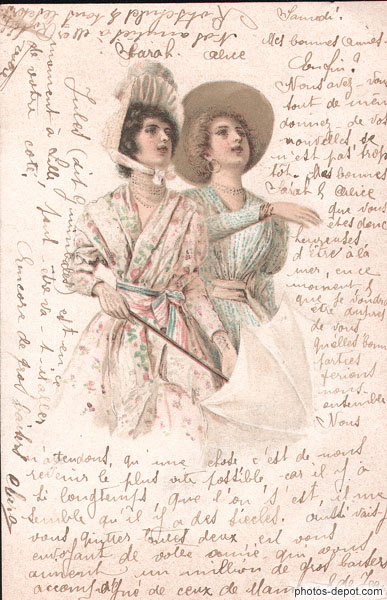 Samedi!
Mes bonnes amies
Enfin!
Nous avez-vous
tout de même
donnez de vos
nouvelles, ce
n'est pas trop
tôt. Mes bonnes
Sarah & Alice
que vous
êtes donc
heureuses
d'être à la
mer, en ce
moment,
que je voudrais
être auprès
de vous
quelles bonnes
parties
ferions
nous
ensemble
Nous
attendons, qu'une chose c'est de nous
revenir le plus vite possible car il y a
si longtemps que l'on s'est, il me
semble qu'il y a des siècles. aussi vais-je
vous quitter toutes deux, en vous
envoyant de votre amie qui vous
aiment un million de gros baisers
accompagné que de ceux de Maman
Jules (dit
est en ce
moment à Lille, peut-être va-t-il aller
de votre côté.
Encore de gros baisers
Sarah. Alice
photos-depot.com